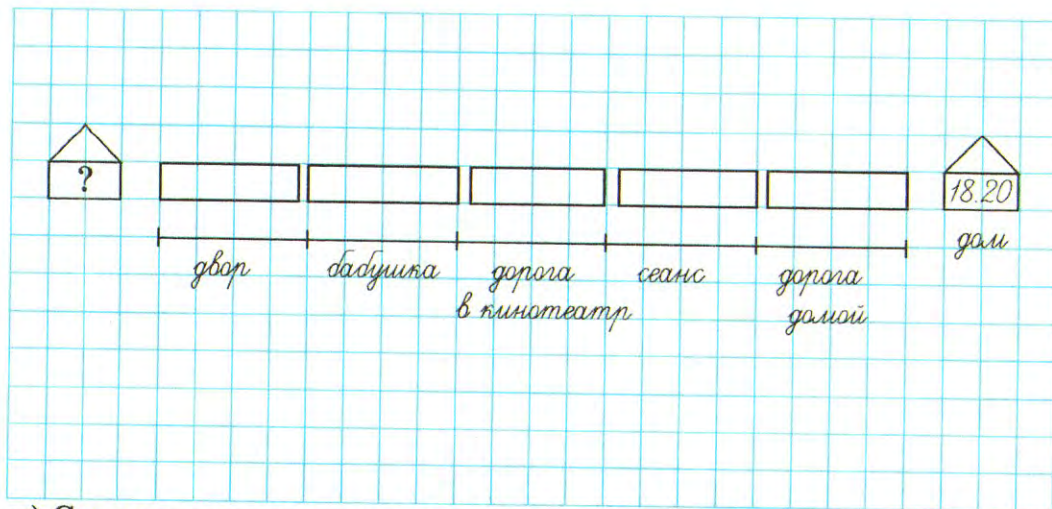 ?
18.20
дом
двор
бабушка
дорога
в кинотеатр
сеанс
дорога
домой